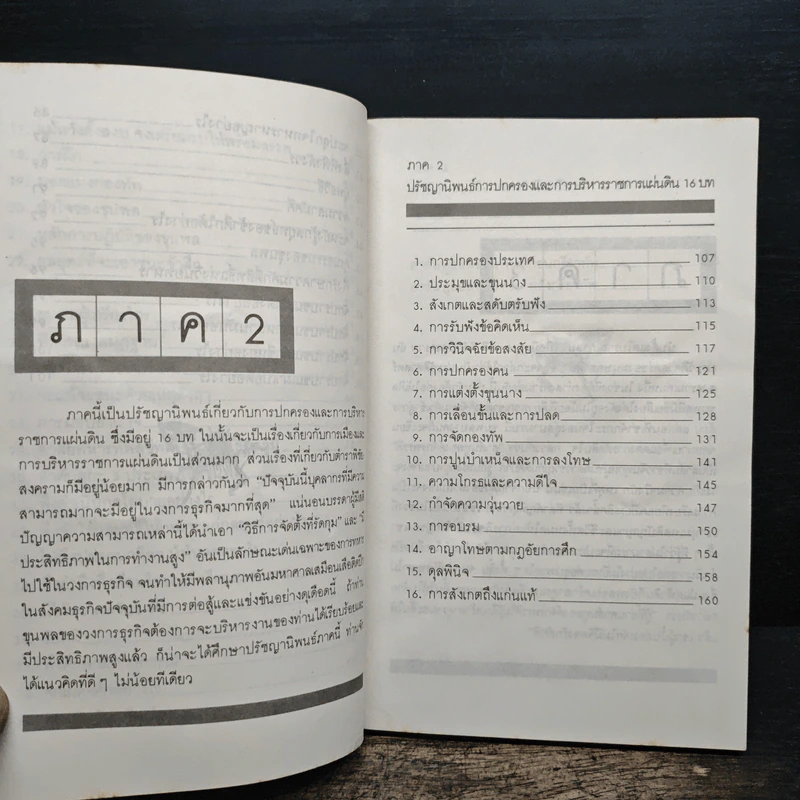 ภาค 2
ภาคนี้เป็นปรัชญานิพนธ์เกี่ยวกับการปกครองและการบริหาร
ราชการแผ่นดิน ซึ่งมีอยู่ 16 บท ในนั้นจะเป็นเรื่องเกี่ยวกับการเมืองและ
การบริหารราชการแผ่นดินเป็นส่วนมาก ส่วนเรื่องที่เกี่ยวกับตำราพิชัย
สงครามก็มีอยู่น้อยมาก มีการกล่าวกันว่า “ปัจจุบันนี้บุคลากรที่มีความ
สามารถมากจะมีอยู่ในวงการธุรกิจมากที่สุด” แน่นอนบรรดาผู้มีสติ
ปัญญาความสามารถเหล่านี้ได้นำเอา “วิธีการจัดตั้งที่รัดกุม” และ “มี
ประสิทธิภาพในการทำงานสูง” อันเป็นลักษณะเด่นเฉพาะของการทหาร
ไปใช้ในวงการธุรกิจ จนทำให้มีพลานุภาพอันมหาศาลเสมือนเสือติดปีก
ในสังคมธุรกิจปัจจุบันที่มีการต่อสู้และแข่งขันอย่างดุเดือดนี้ ถ้าท่าน
ขุนพลของวงการธุรกิจต้องการจะบริหารงานของท่านให้เรียบร้อยและ
มีประสิทธิภาพสูงแล้ว ก็น่าจะได้ศึกษาปรัชญานิพนธ์ภาคนี้ ท่านจะ
ได้แนวคิดที่ดี ๆ ไม่น้อยทีเดียว
ภาค 2
ปรัชญานิพนธ์การปกครองและการบริหารราชการแผ่นดิน 16 บท
1. การปกครองประเทศ 107
2. ประมุขและขุนนาง 110
3. สังเกตและสดับตรับฟัง 113
4. การรับฟังข้อคิดเห็น 115
5. การวินิจฉัยข้อสงสัย 117
6. การปกครองคน 121
7. การแต่งตั้งขุนนาง 125
8. การเลื่อนชั้นและการปลด 128
9. การจัดกองทัพ 131
10. การปูนบำเหน็จและการลงโทษ 141
11. ความโกรธและความดีใจ 145
12. กำจัดความวุ่นวาย 147
13. การอบรม 150
14. อาญาโทษตามกฎอัยการศึก 154
15. ดุลพินิจ 158
16. การสังเกตถึงแก่นแท้ 160